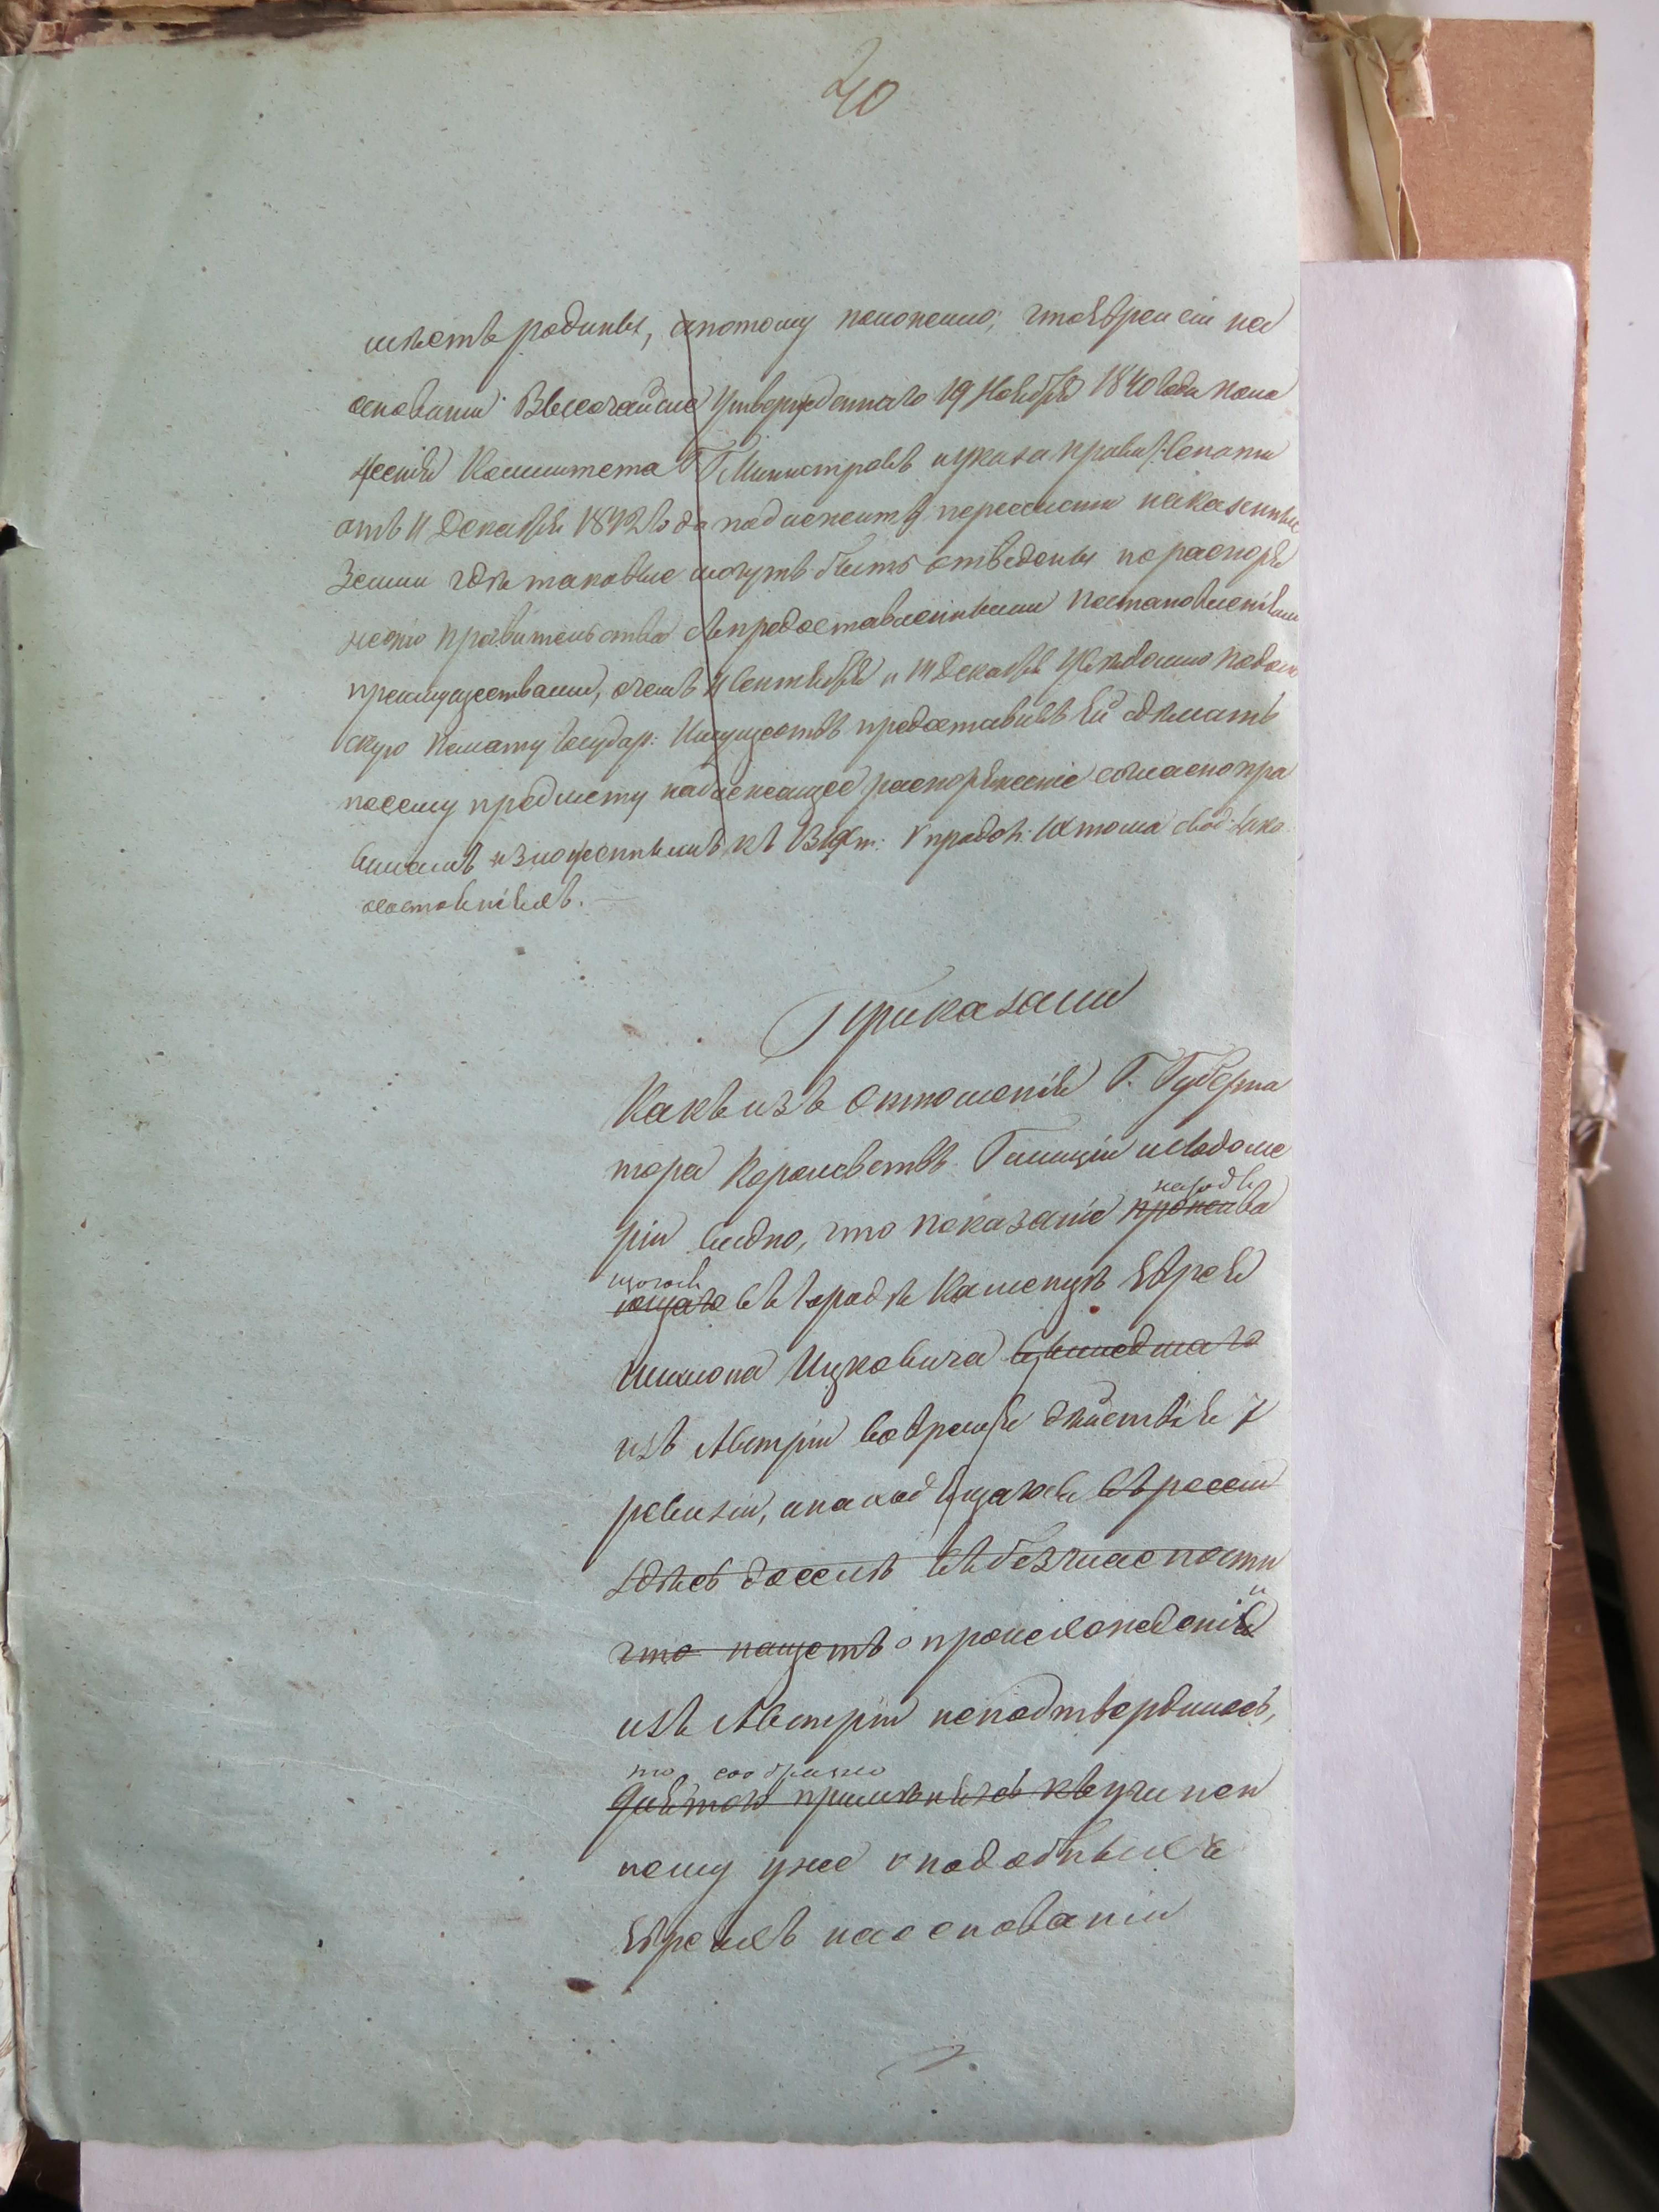 40
мѣстъ родины, а потому положено; что Евреи сіи на
основаніи Высочайше утвержденнаго 19 Ноября 1840 года поло
женія Комитета Г. Министровъ и указа Правит: Сената
отъ 11 Декабря 1842 года подлежитъ переселить на казенные
земли гдѣ таковые могутъ быть отведены по распоря
женію правительства съ предоставленными постановленіями
преимуществами, о чемъ Сентября и Декабря увѣдомлено Подоль
скую Палату Государ: Имуществъ предоставивъ Ей сдѣлать
по сему предмету надлежащее распоряженіе согласно пра
виламъ изложеннымъ къ прод: IX тома свод: Зако:
состояніяхъ.
Приказали
Какъ изъ отношенія Г. Губерна
тора Королевствъ Галиціи и Лодоме
ріи видно, что показаніе прожива
находя
щагося
ющаго въ Городѣ Каменцѣ Еврея
Шимона Ицковича вышедшаго
изъ Австріи во время дѣйствія 7
ревизіи, и находящагося въ россіи
здѣсь доселѣ въ безгласности
что нащетъ о происхожденіи
изъ Австріи неподтвердилось,
то сообразно
примѣняясь къ учинен
ному уже о подобныхъ
Евреяхъ на основаніи